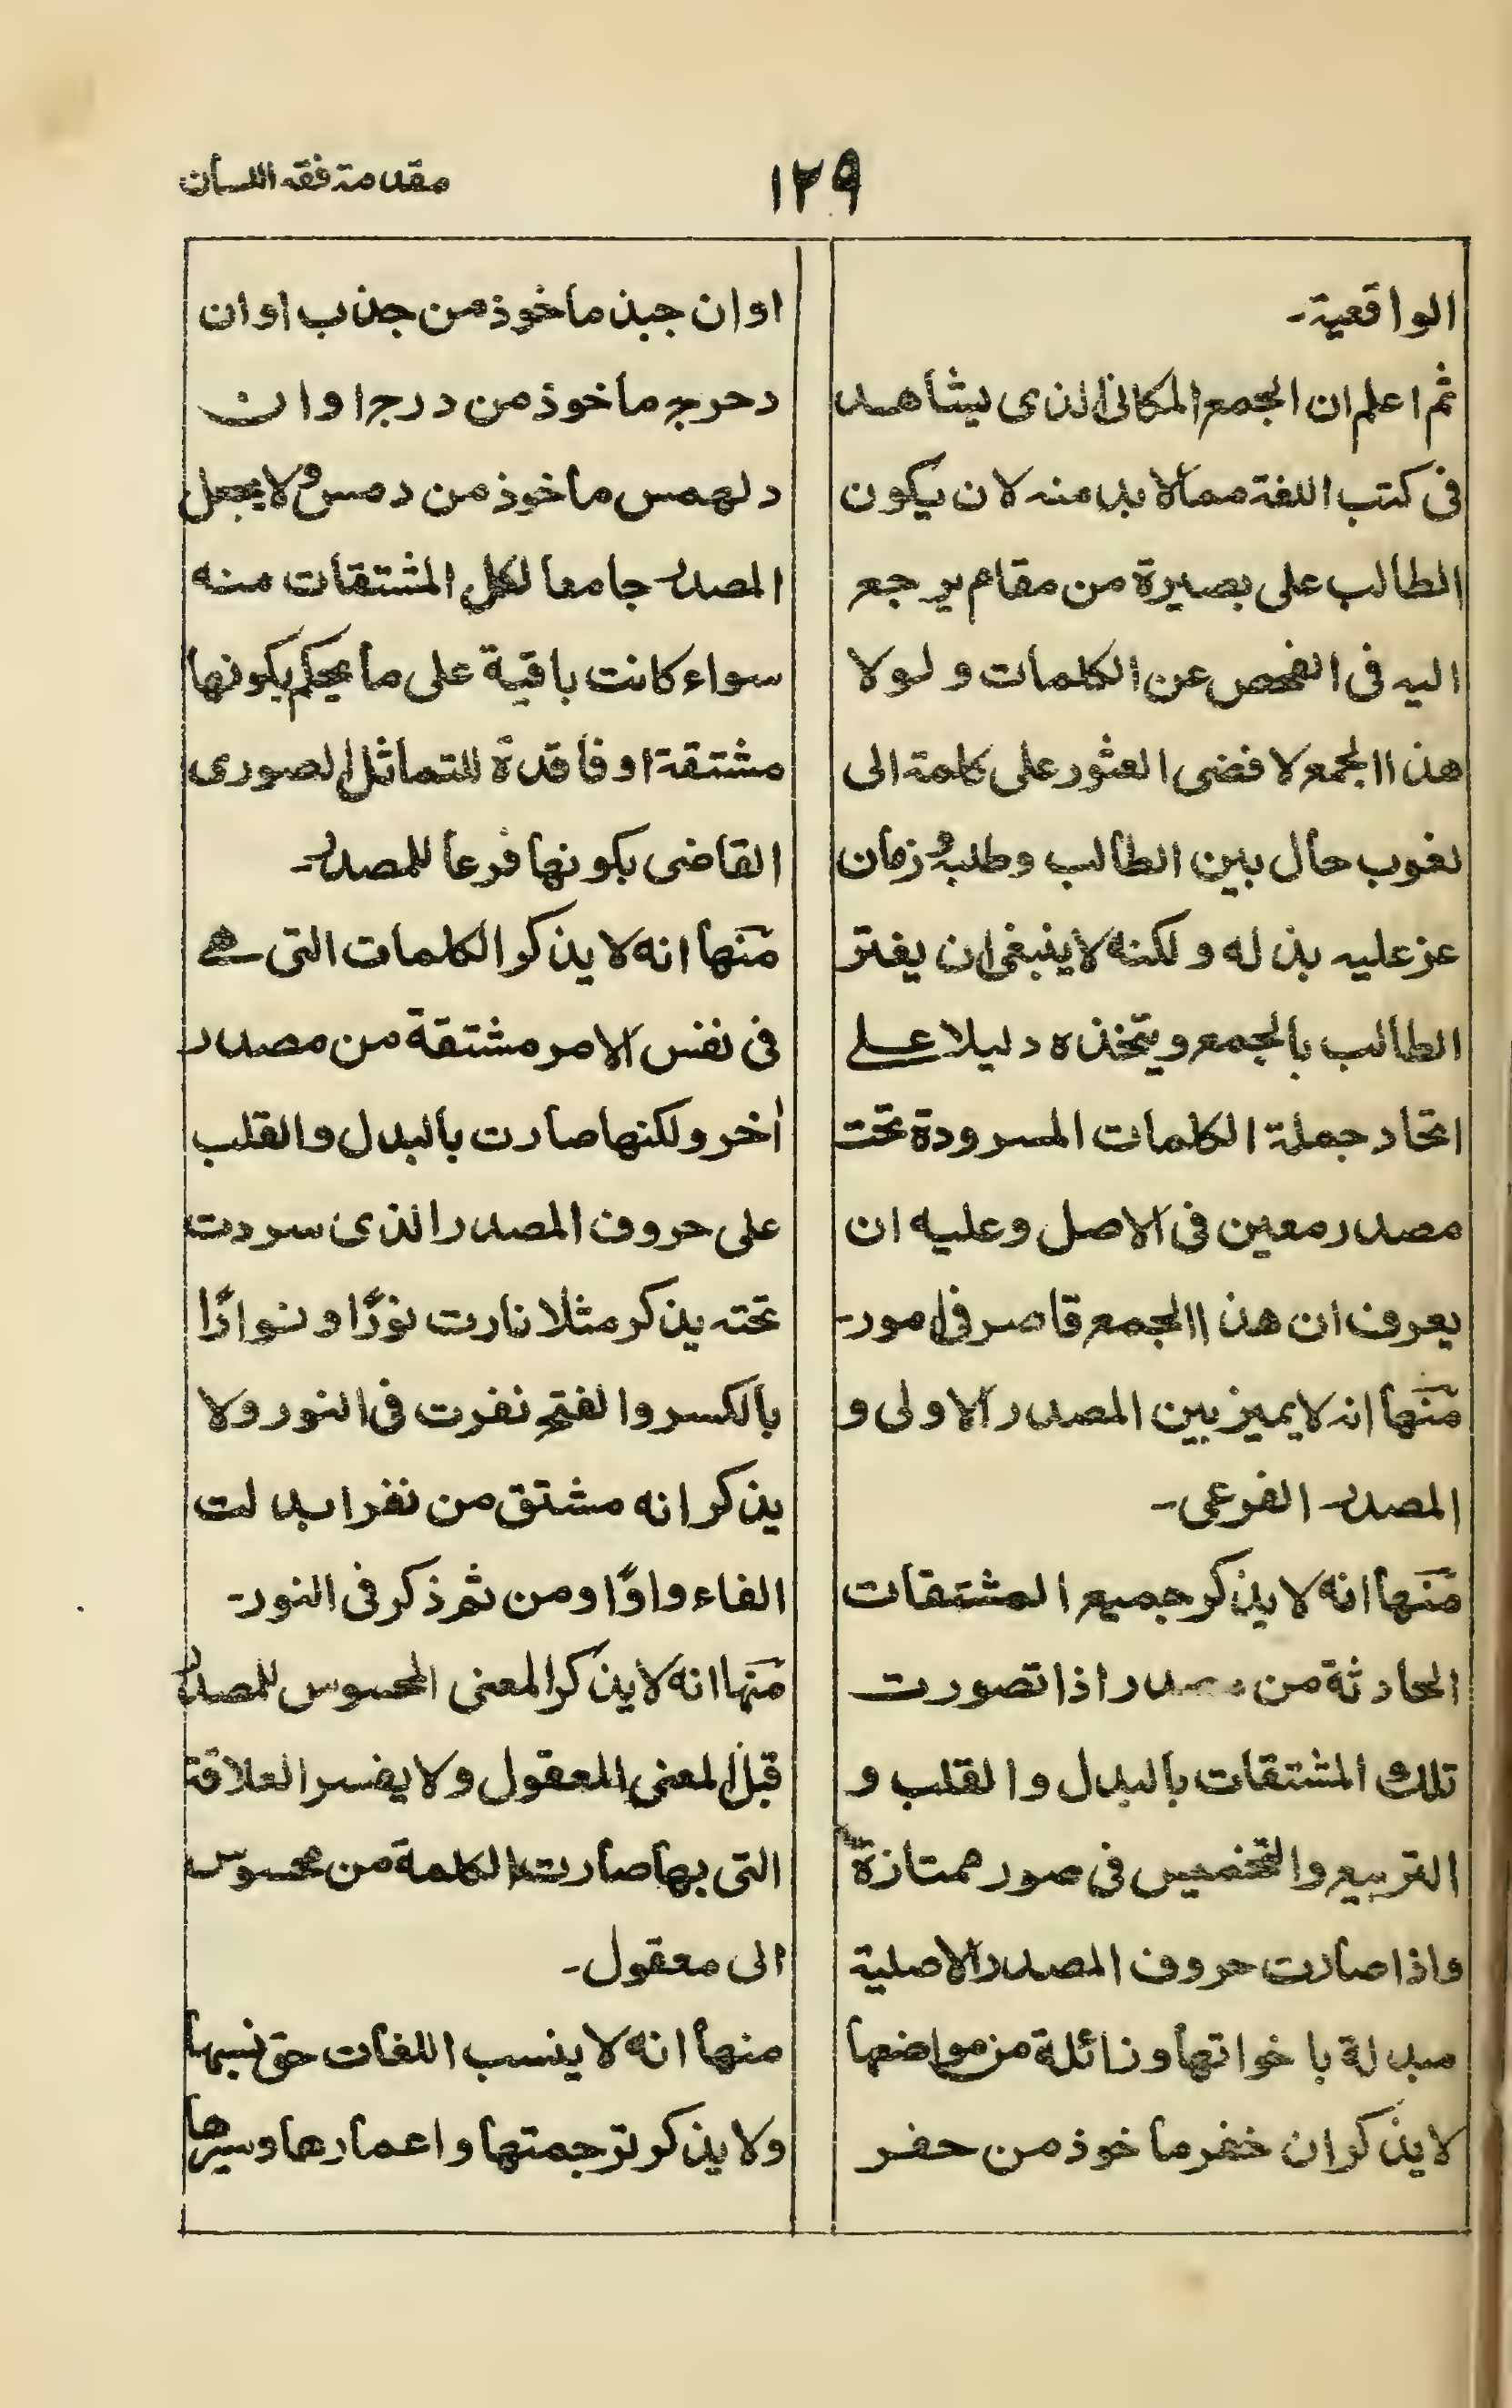 مقدمة فقه اللسان
١٢٩
الواقعية۔
ثم اعلم ان الجمع المكانى الذى يشاهد
فى كتب اللغة مما لا بد منه لان يكون
الطالب على بصيرة من مقام يرجع
اليه فى الفحص عن الكلمات ولو لا
هذا الجمع لا فضى العثور على كلمة الى
لغوب حال بين الطالب وطلبه وزمان
عز عليه بذله ولكنه لا ينبغى ان يغتر
الطالب بالجمع ويتخذه دليلا على
اتحاد جملة الكلمات المسرودة تحت
مصدر معين فى الاصل وعليه ان
يعرف ان هذا الجمع قاصر فى امور۔
منها انه لا يميز بين المصدر الاولى و
المصدر الفرعى۔
منها انه لا يذكر جميع المشتقات
الحادثة من مصدر اذا تصورت
تلك المشتقات بالبدل والقلب و
التربيع والتخميس فى صور ممتازة
واذا صارت حروف المصدر الاصلية
مبدلة باخواتها وزائلة من مواضعها
لا يذكر ان خفر ماخوذ من حفر
او ان جبذ ماخوذ من جذب او ان
دحرج ماخوذ من درج او ان
دلهمس ماخوذ من دمس ولا يجعل
المصدر جامعا لكل المشتقات منه
سواء كانت باقية على ما يحكم بكونها
مشتقة او فاقدة للتماثل الصورى
القاضى بكونها فرعا للمصدر۔
منها انه لا يذكر الكلمات التى هى
فى نفس الامر مشتقة من مصدر
اٰخر ولكنها صارت بالبدل والقلب
على حروف المصدر الذى سردت
تحته يذكر مثلا نارت نورًا و نوارًا
بالكسر والفتح نفرت فى النور ولا
يذكر انه مشتق من نفر ابدلت
الفاء واوًا ومن ثم ذكر فى النور۔
منها انه لا يذكر المعنى المحسوس للمصدر
قبل المعنى المعقول ولا يفسر العلاقة
التى بها صارت الكلمة من محسوس
الى معقول۔
منها انه لا ينسب اللغات حق نسبها
ولا يذكر ترجمتها واعمارها وسيرها